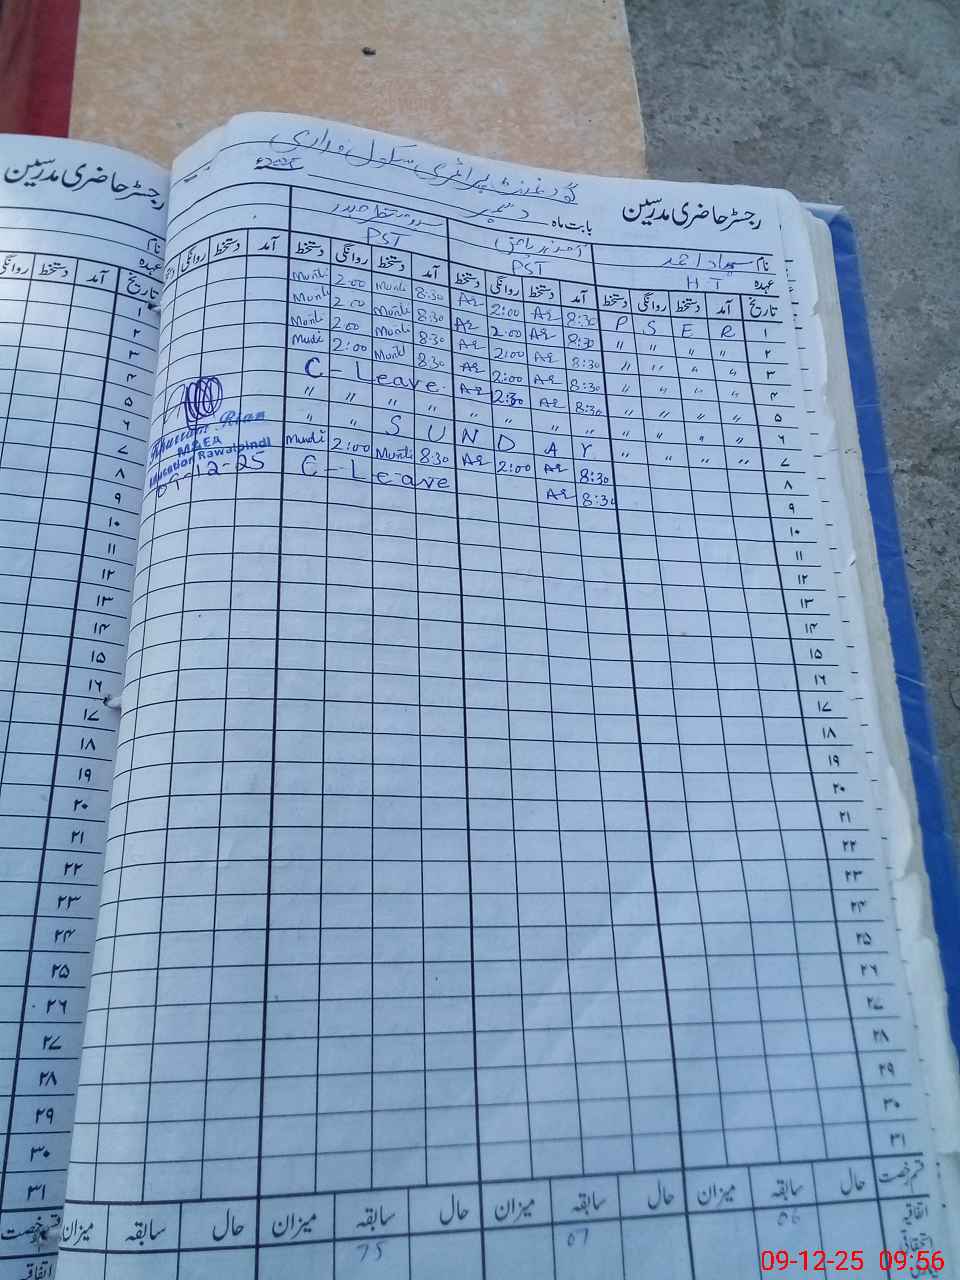 رجسٹر حاضری مدرسین
گورنمنٹ پرائمری سکول
بابت ماہ دسمبر
نام
PST PST H T عہدہ
دستخط روانگی دستخط آمد دستخط روانگی دستخط آمد دستخط روانگی دستخط آمد تاریخ
2:00 8:30 Az 2:00 Az 8:30 P S E R ۱
2:00 8:30 Az 2:00 Az 8:30 " " " " ۲
2:00 8:30 Az 2:00 Az 8:30 " " " " ۳
2:00 8:30 Az 2:00 Az 8:30 " " " " ۴
C - Leave Az 2:30 Az 8:30 " " " " ۵
" " " " " " " " " " " " ۶
" " S U N D A Y " " " " ۷
2:00 8:30 Az 2:00 Az 8:30 ۸
C - Leave Az 8:30 ۹
۱۰
۱۱
۱۲
۱۳
۱۴
۱۵
۱۶
۱۷
۱۸
۱۹
۲۰
۲۱
۲۲
۲۳
۲۴
۲۵
۲۶
۲۷
۲۸
۲۹
۳۰
۳۱
میزان سابقہ حال میزان سابقہ حال میزان سابقہ حال قسم رخصت
75 07 06 اتفاقیہ
استحقاقی
M&EA
Education Rawalpindi
09-12-25
رجسٹر حاضری مدرسین
نام
عہدہ
روانگی دستخط آمد تاریخ
۱
۲
۳
۴
۵
۶
۷
۸
۹
۱۰
۱۱
۱۲
۱۳
۱۴
۱۵
۱۶
۱۷
۱۸
۱۹
۲۰
۲۱
۲۲
۲۳
۲۴
۲۵
۲۶
۲۷
۲۸
۲۹
۳۰
۳۱
قسم رخصت
اتفاقیہ
09-12-25 09:56